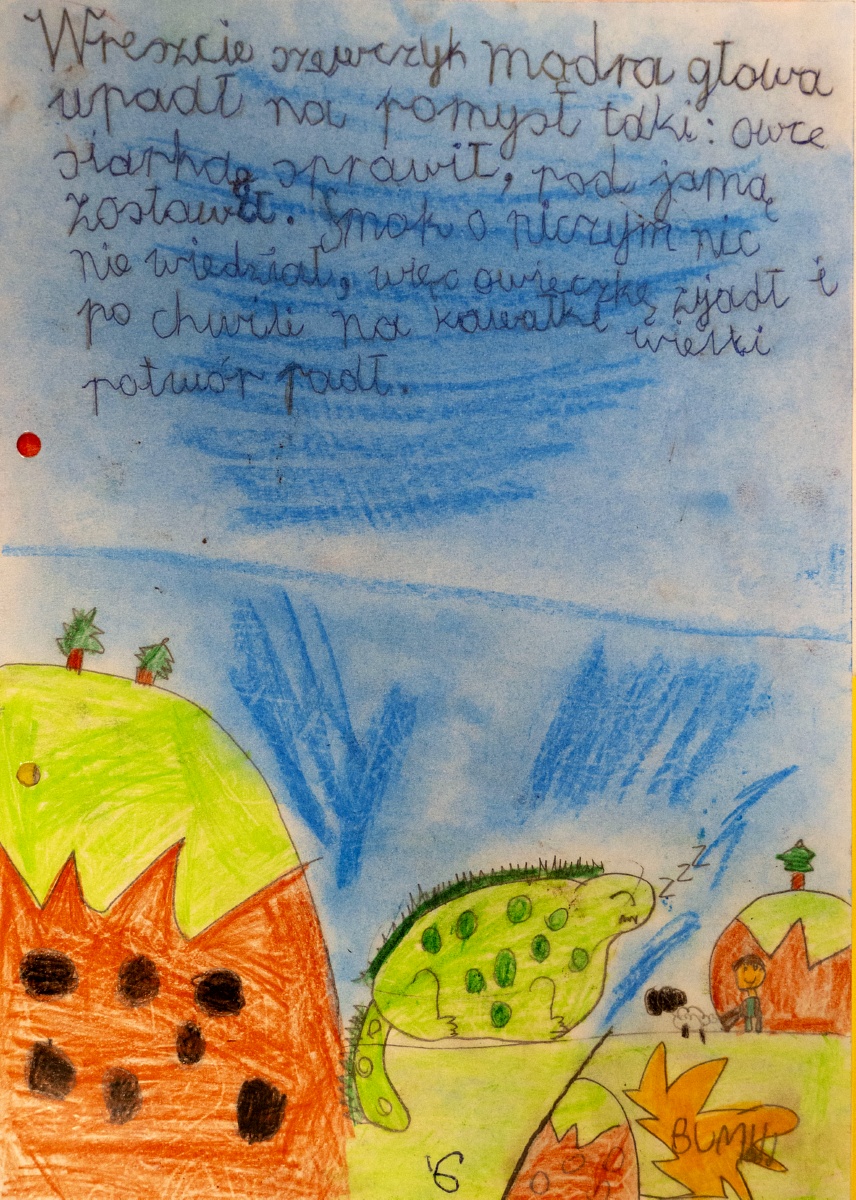 Wreszcie szewczyk mądra głowa
upadł na pomysł taki: owce
siarką sprawił, pod jamą
zostawił. Smok o niczym nic
nie wiedział, więc owieczkę zjadł i
po chwili na kawałki wielki
potwór padł.
z z z
BUM!!
6